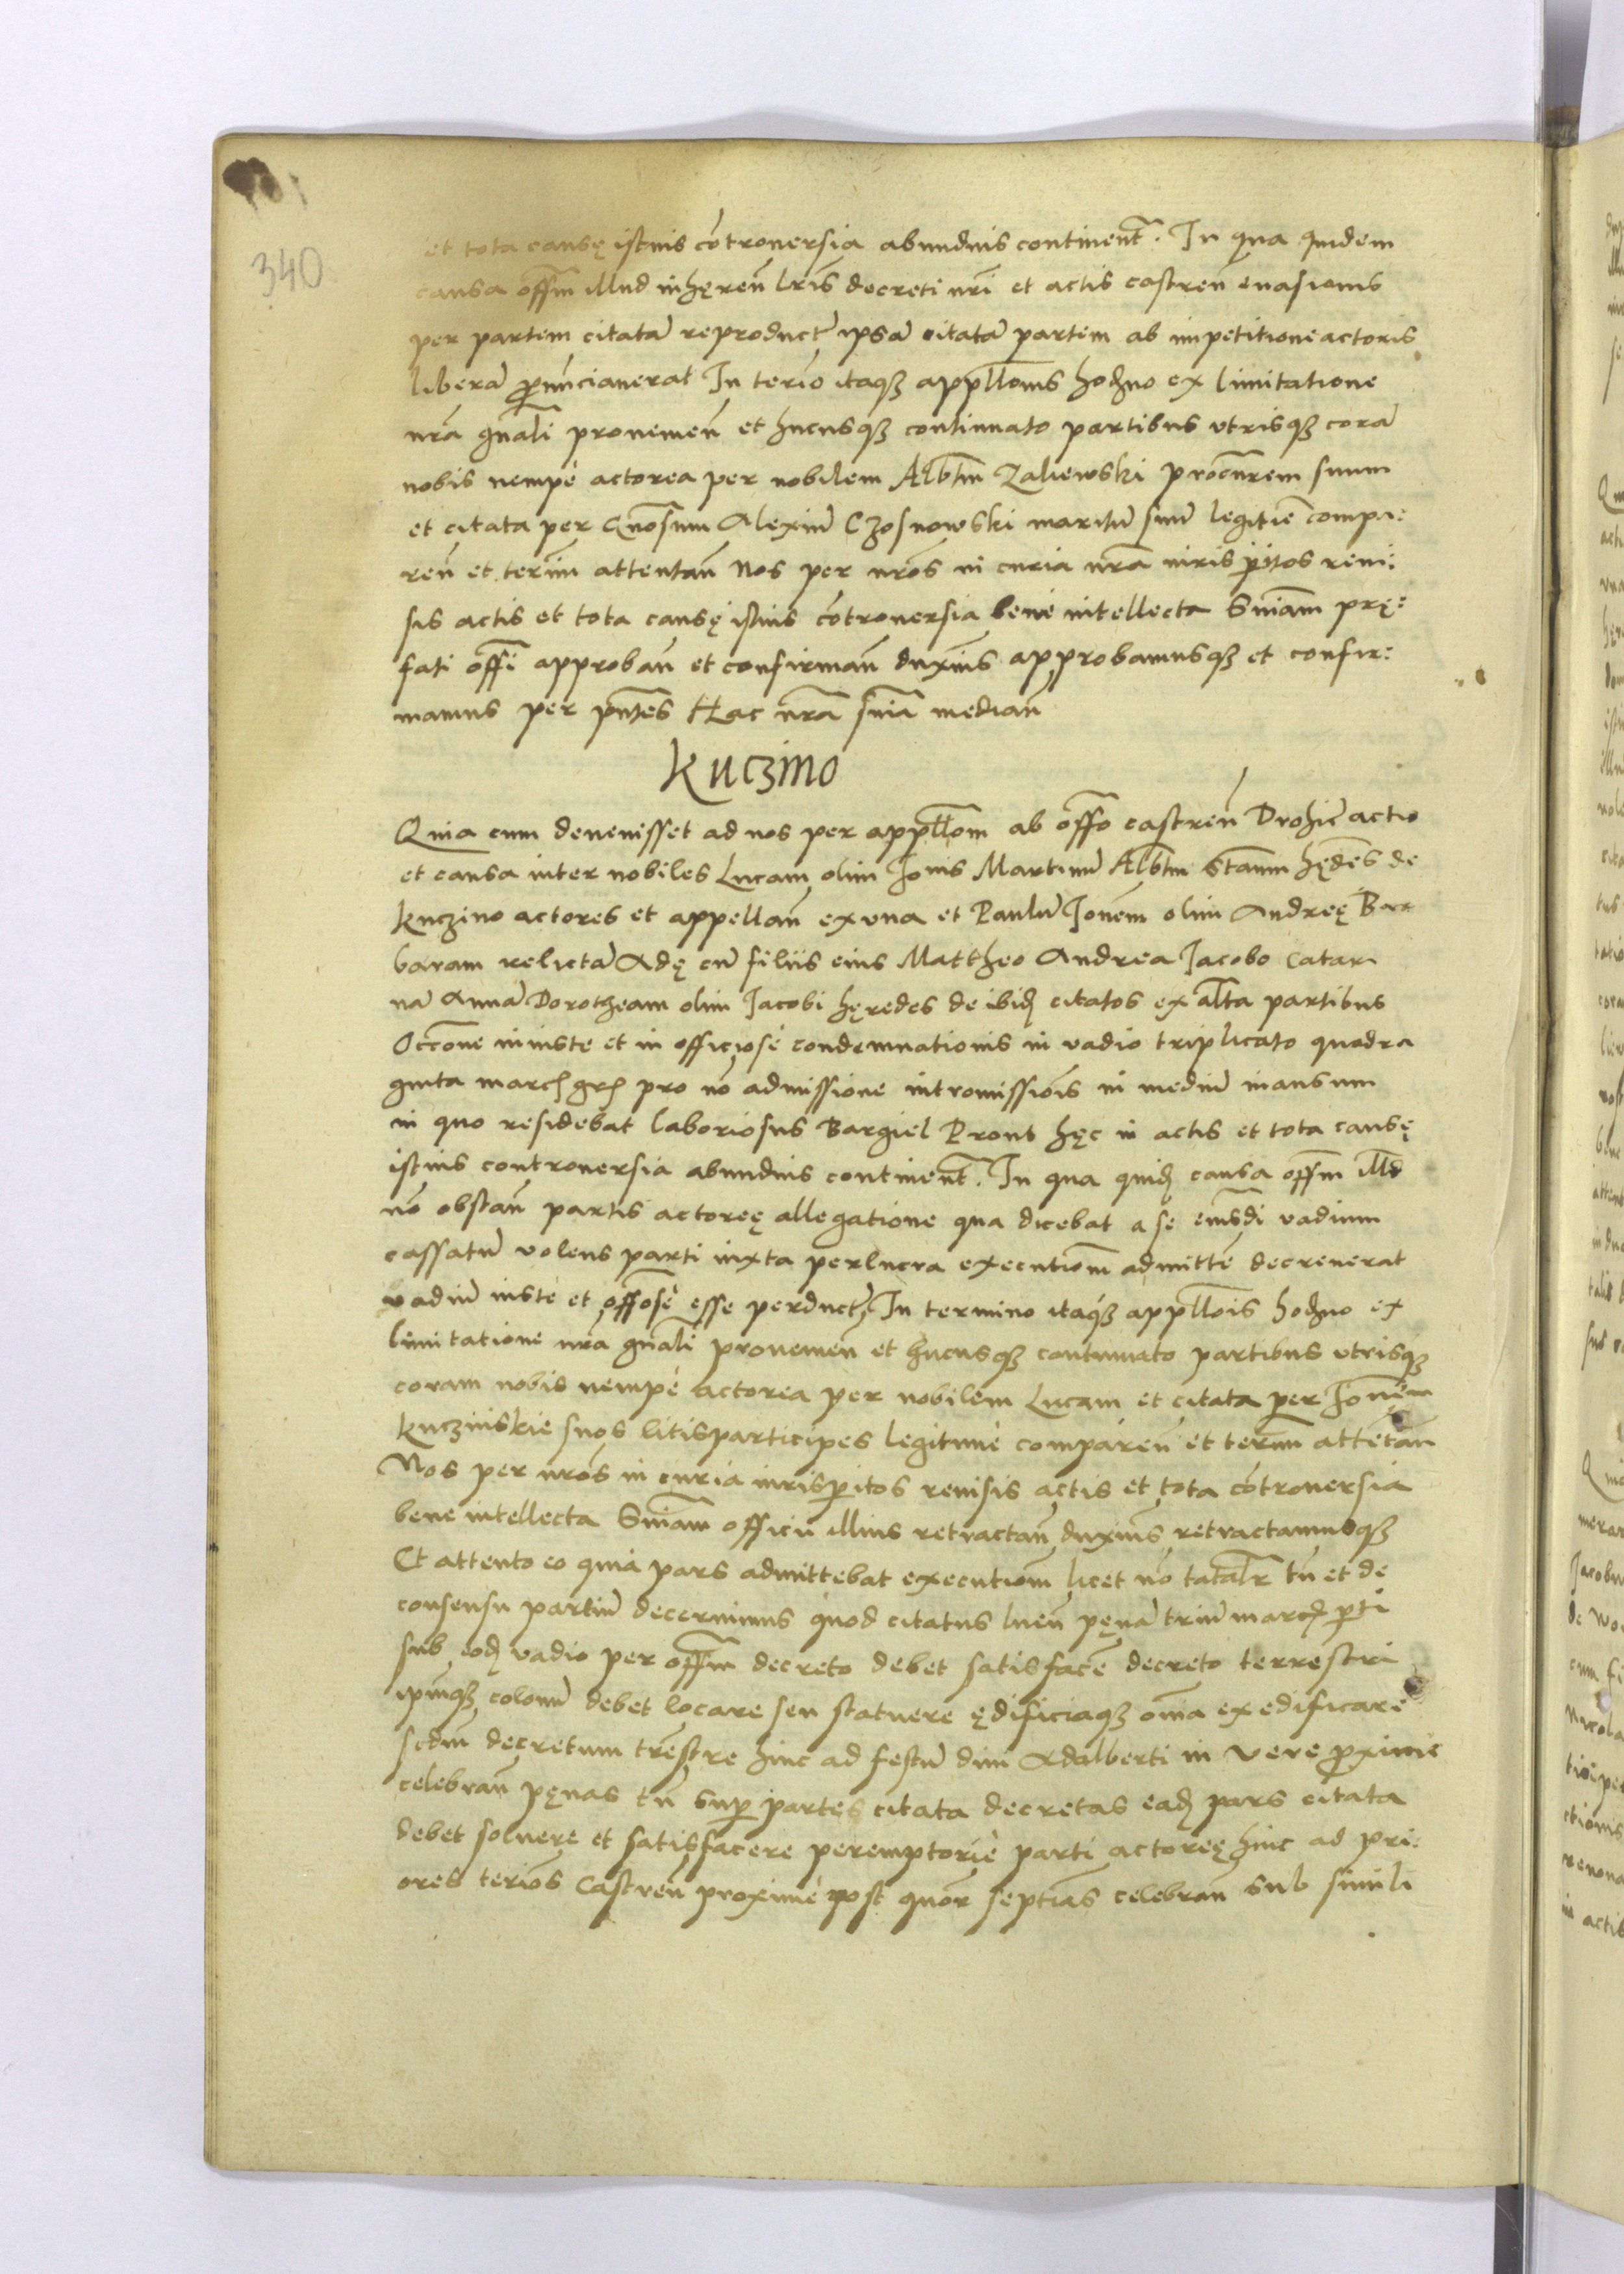 340
et tota causę istius cōtrouersia abundius continent̄. In qua quidem
causa offm̄ illud inhęren̄ lr̄is decreti nr̄i et actis castren̄ euasionis
per partem citatā reproduct̄ ipsā citatā partem ab impetitione actoris
liberā pronunciauerat In ter̄io itaqꝫ appll̄onis hodŕno ex limitatione
nr̄a gnāli prouenien̄ et hucusqꝫ continuato partibus vtrisqꝫ corā
nobis nempè actorea per nobilem Albr̄tm Zaliewski procūrem suum
et citata per Gnōsum Alexiū Czosnowski maritū suū legitīe compa:
ren̄ et term̄ attentan̄ Nos per nrōs in curia nr̄a iuris pītos reui:
sis actis et tota causę istius cōtrouersia bene intellecta Sniām prę:
fati offī approban̄ et confirman̄ duxim̄s approbamusqꝫ et confir:
mamus per pn̄tes Hac nr̄a snīa median̄
Kuczino
Quia cum deuenisset ad nos per appll̄om ab offō castren̄ Drohic̄ actio
et causa inter nobiles Lucam olim Joīnis Martinū Albr̄tm Stānm hęd̄es de
Kuczino actores et appellan̄ ex vna et Paulū Jon̄em olim Andreę Bar
baram relictā Adę cū filiis eius Mattheo Andrea Jacobo Catari
nā Annā Dorotheam olim Jacobi hęredes de ibid̄ citatos ex alt̄a partibus
Occ̄one iniuste et in officiosè condemnationis in vadio triplicato quadra
ginta march gr̄ pro nō admissione intromissiōis in mediū mansum
in quo residebat laboriosus Bargiel Prout hęc in actis et tota causę
istius controuersia abundius continent̄. In qua quid̄ causa offm̄ illd̄
nō obstan̄ partis actoreę allegatione qua dicebat a se eiusd̄i vadium
cassatū volens parti iuxta perlucra executiom̄ admittē decreuerat
vadiū iustè et offōsè esse perduct̄ In termino itaqꝫ appll̄ois hodŕno ex
limitatione nr̄a gnāli prouenien̄ et hucusqꝫ continuato partibus vtrisqꝫ
coram nobis nempè actorea per nobilem Lucam et citata per Jon̄em
Kuczinskie suos litisparticipes legitimè comparen̄ et term̄ attētan̄
Nos per nrōs in curia iurisperitos reuisis actis et tota cōtrouersia
bene intellecta Sniām officii illius retractan̄ duxim̄s retractamusqꝫ
Et attento eo quia pars admittebat executiom̄ licet nō tatalr̄ tn̄ et de
consensu partiū decernimus quod citatus luen̄ pęnā triū marcḋ pti
sub eod̄ vadio per offm̄ decreto debet satisfacē decreto terrestri
ipm̄qꝫ colonū debet locare seu statuere ędificiaqꝫ oīna exedificare
scd̄m decretum tr̄estre hinc ad festū diui Adalberti in vere proximè
celebran̄ pęnas tn̄ sup̄ partes citata decretas ead̄ pars citata
debet soluere et satisfacere peremptoriè parti actoreę hinc ad pri:
ores ter̄ios Castren̄ proximè post quōr septīas celebran̄ sub simili